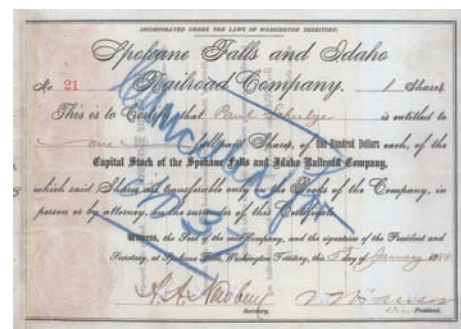 INCORPORATED UNDER THE LAWS OF WASHINGTON TERRITORY.
Spokane Falls and Idaho
No. 21 Railroad Company. 1 Shares
This is to Certify that Paul Schulze is entitled to
one full paid Shares, of One Hundred Dollars each, of the
Capital Stock of the Spokane Falls and Idaho Railroad Company,
which said Shares are transferable only on the Books of the Company, in
person or by attorney, on the surrender of this Certificate.
Witness, the Seal of the said Company, and the signature of the President and
Secretary, at Spokane Falls, Washington Territory, this 5th day of January 188
Secretary. Vice President.
Cancelled